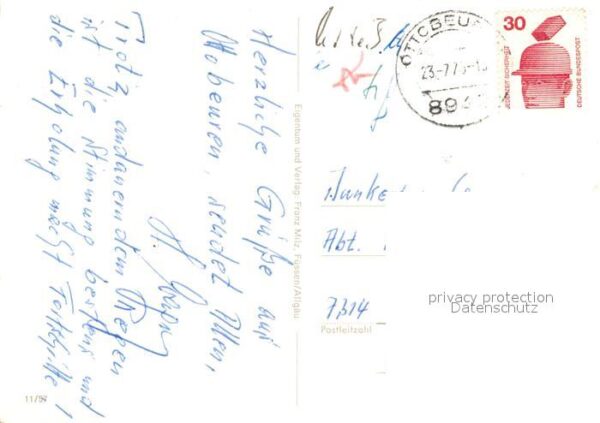 Herzliche Grüße aus
Ottobeuren, sendet Allen,
H.
Trotz andauerndem Regen
ist die Stimmung bestens und
die Erholung macht Fortschritte!
Eigentum und Verlag: Franz Milz, Füssen/Allgäu
11/57
OTTOBEU
23-7.7
89
30
JEDERZEIT SICHERHEIT
DEUTSCHE BUNDESPOST
Abt.
7314
Postleitzahl
privacy protection
Datenschutz